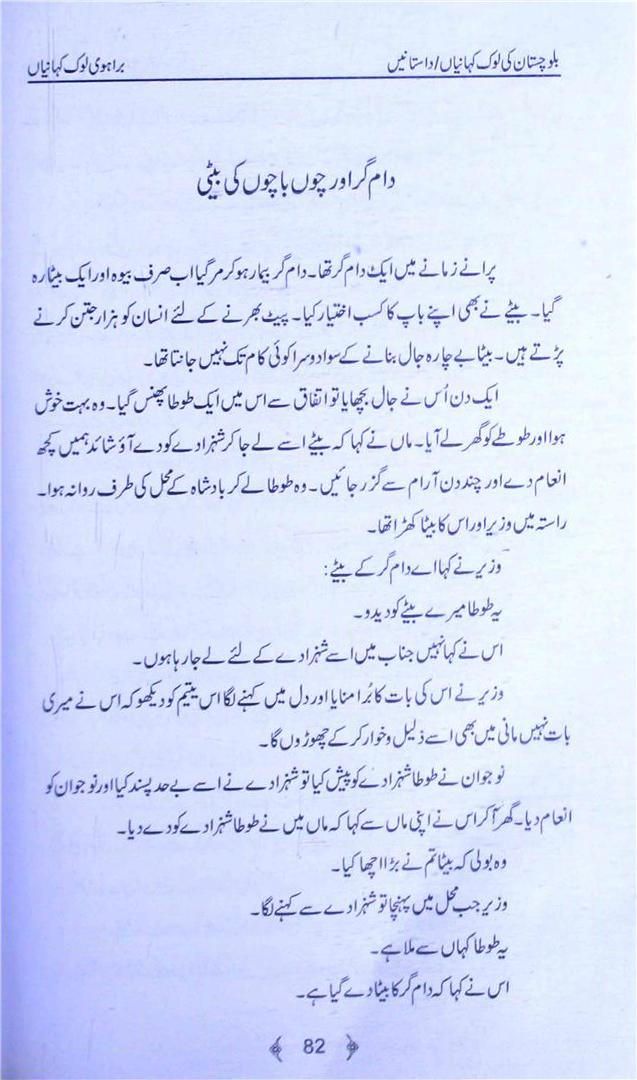 بلوچستان کی لوک کہانیاں/داستانیں
براہوی لوک کہانیاں
دام گر اور چوں باچوں کی بیٹی
پرانے زمانے میں ایک دام گر تھا۔ دام گر بیمار ہو کر مر گیا اب صرف بیوہ اور ایک بیٹا رہ
گیا۔ بیٹے نے بھی اپنے باپ کا کسب اختیار کیا۔ پیٹ بھرنے کے لئے انسان کو ہزار جتن کرنے
پڑتے ہیں۔ بیٹا بے چارہ جال بنانے کے سوا دوسرا کوئی کام تک نہیں جانتا تھا۔
ایک دن اُس نے جال بچھایا تو اتفاق سے اس میں ایک طوطا پھنس گیا۔ وہ بہت خوش
ہوا اور طوطے کو گھر لے آیا۔ ماں نے کہا کہ بیٹے اسے لے جا کر شہزادے کو دے آؤ شائد ہمیں کچھ
انعام دے اور چند دن آرام سے گزر جائیں۔ وہ طوطا لے کر بادشاہ کے محل کی طرف روانہ ہوا۔
راستہ میں وزیر اور اس کا بیٹا کھڑا تھا۔
وزیر نے کہا اے دام گر کے بیٹے:
یہ طوطا میرے بیٹے کو دیدو۔
اس نے کہا نہیں جناب میں اسے شہزادے کے لئے لے جا رہا ہوں۔
وزیر نے اس کی بات کا بُرا منایا اور دل میں کہنے لگا اس یتیم کو دیکھو کہ اس نے میری
بات نہیں مانی میں بھی اسے ذلیل و خوار کر کے چھوڑوں گا۔
نوجوان نے طوطا شہزادے کو پیش کیا تو شہزادے نے اسے بے حد پسند کیا اور نوجوان کو
انعام دیا۔ گھر آ کر اس نے اپنی ماں سے کہا کہ ماں میں نے طوطا شہزادے کو دے دیا۔
وہ بولی کہ بیٹا تم نے بڑا اچھا کیا۔
وزیر جب محل میں پہنچا تو شہزادے سے کہنے لگا۔
یہ طوطا کہاں سے ملا ہے۔
اس نے کہا کہ دام گر کا بیٹا دے گیا ہے۔
82